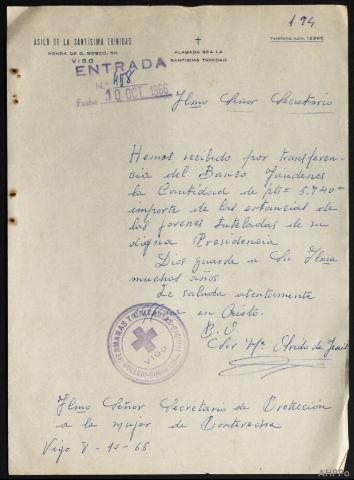 194
ASILO DE LA SANTÍSIMA TRINIDAD
RONDA DE D. BOSCO, 50
VIGO
ALABADA SEA LA
SANTÍSIMA TRINIDAD
TELÉFONO, NÚM.
ENTRADA
N.º 458
Fecha 10 OCT 1966
Ilmo Señor Secretario
Hemos recibido por transferen-
cia del Banco
la Cantidad de pts= 5.740=
importe de las estancias de
las jovenes tuteladas de su
digna Presidencia
Dios guarde a Su Ilma
muchos años
Le saluda atentamente
en Cristo.
B. S.
Sor Mª de Jesús
HERMANAS TRINITARIAS
VIGO
Ilmo Señor Secretario de Protección
a la mujer de Pontevedra
Vigo 8-10-66
AHPPo